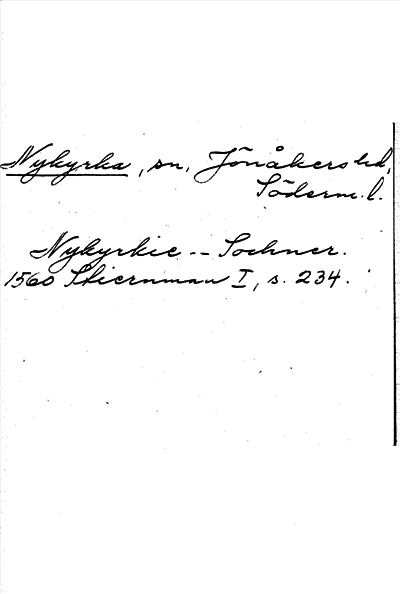 Nykyrka, sn, Jönåkers hd,
Söderm. l.
Nykyrkie -- Sochner.
1560 Stiernman I, s. 234.